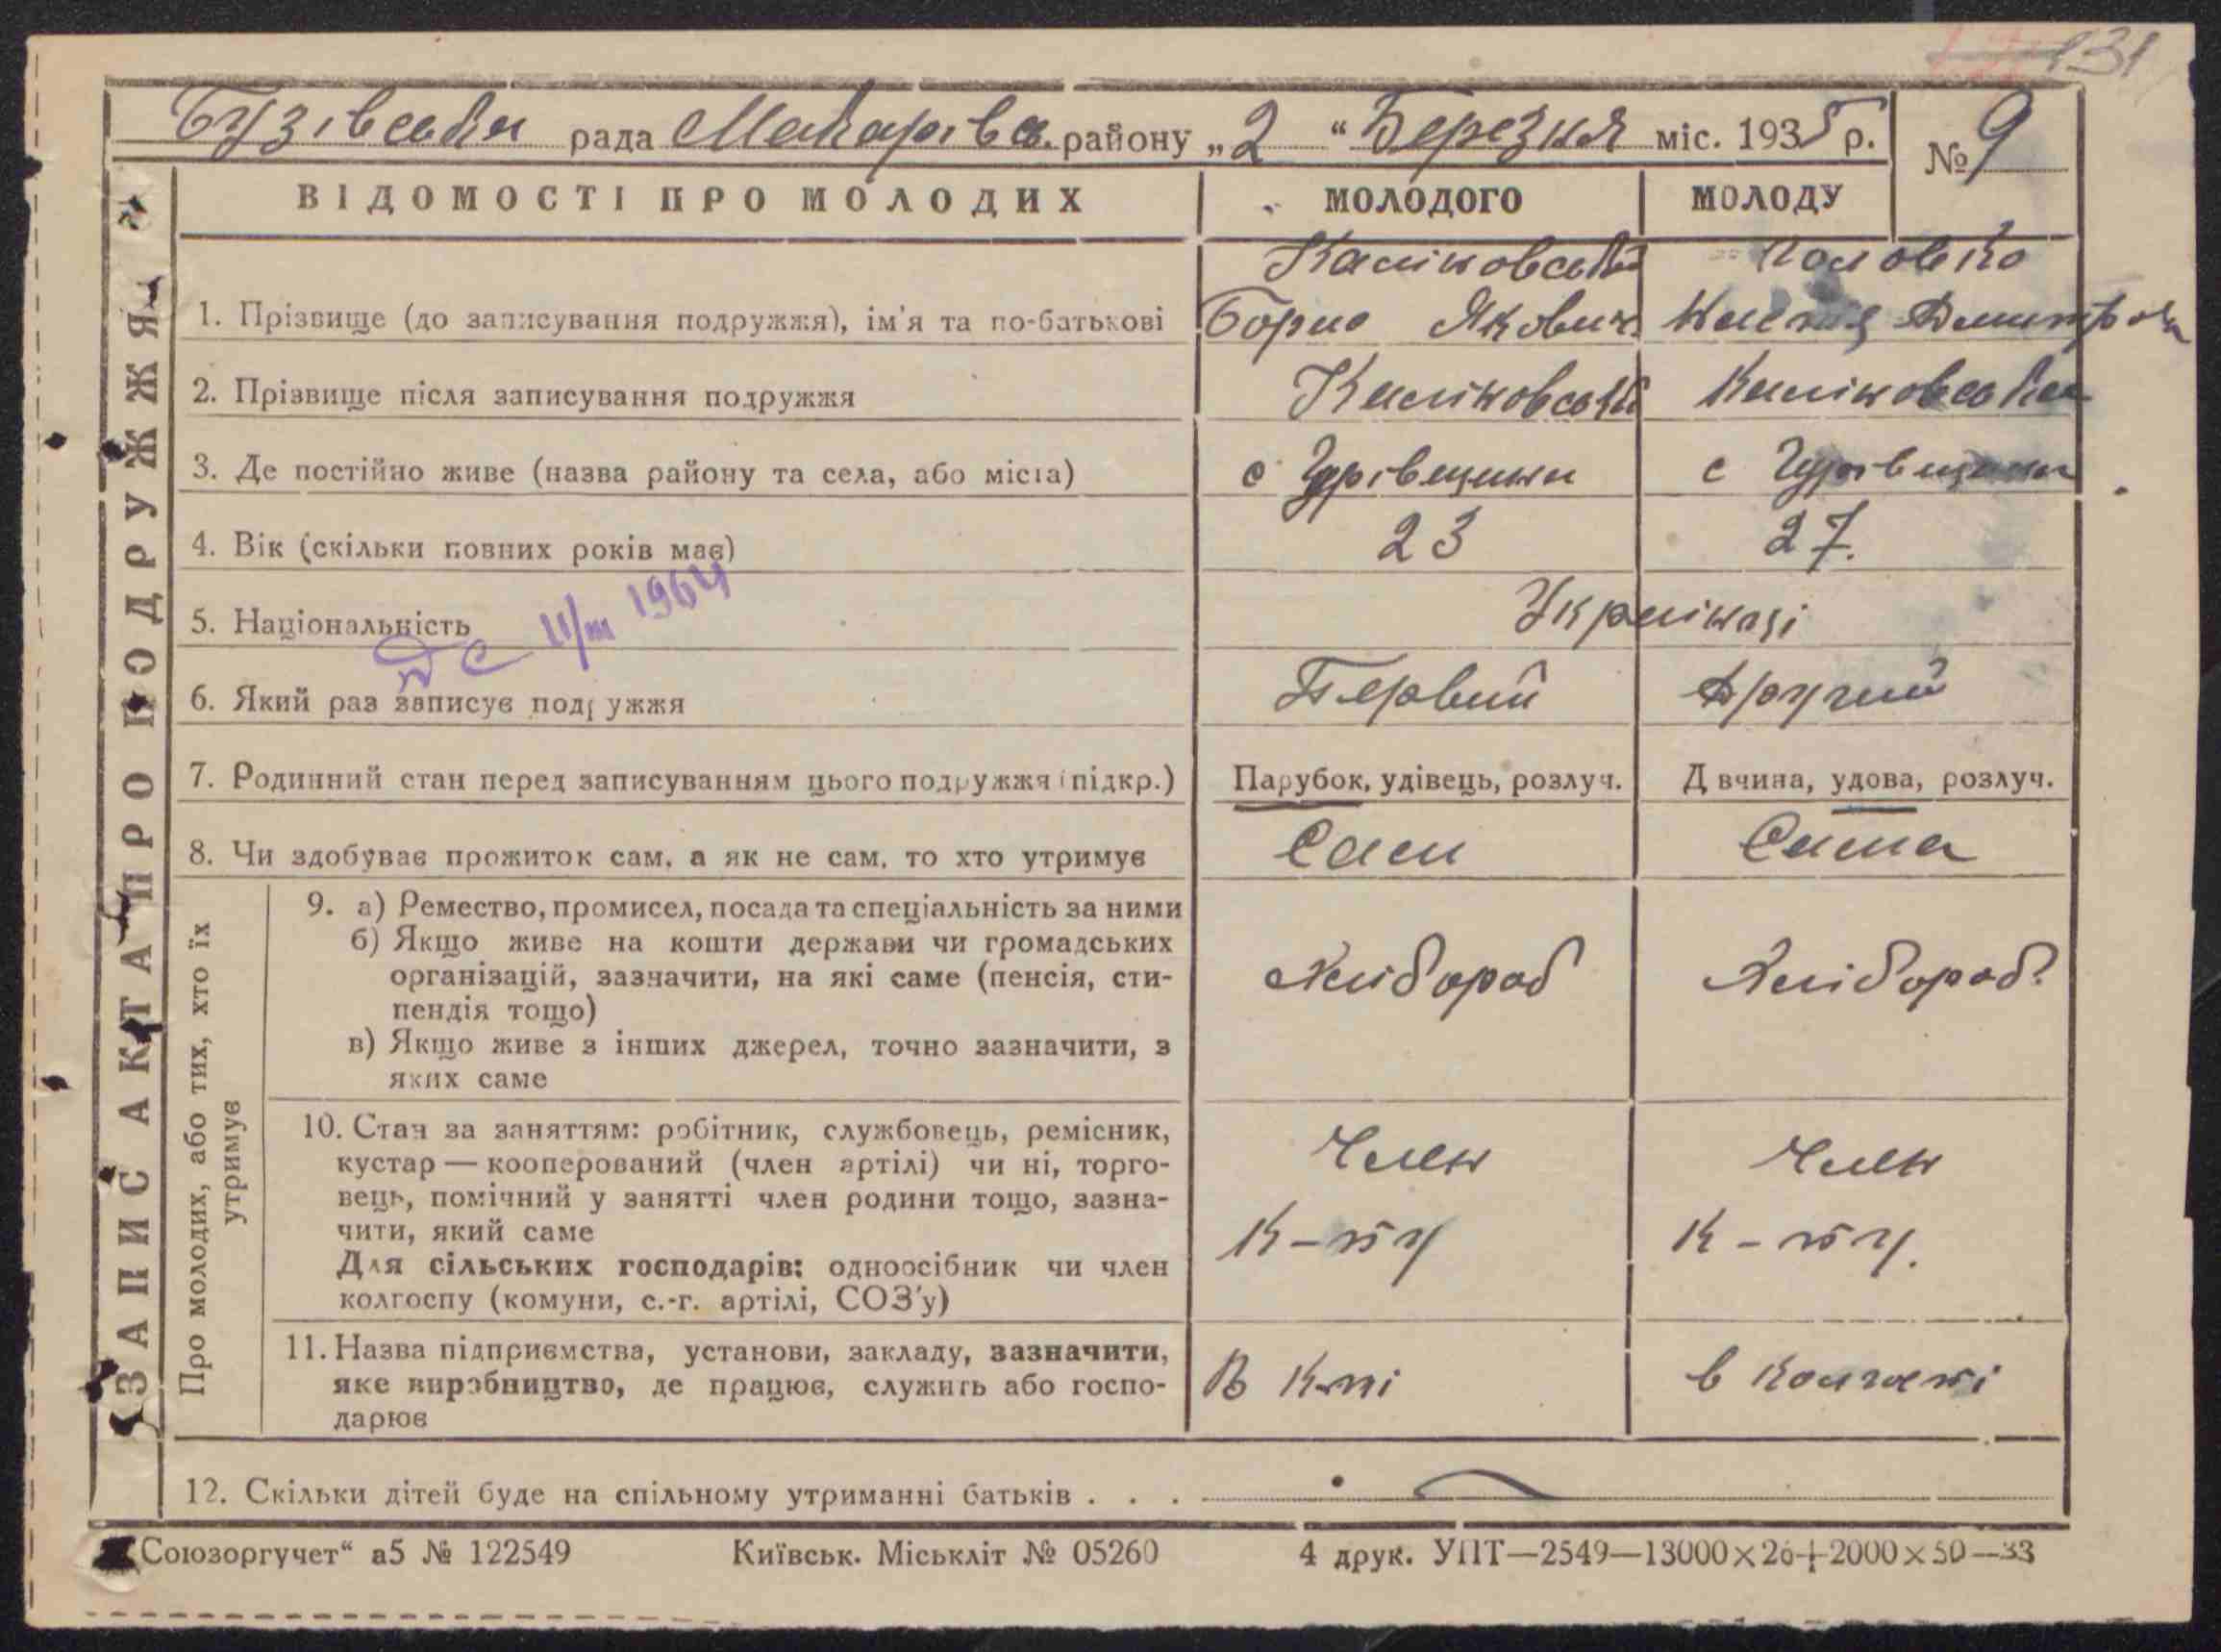 131
Бузівська рада Макарівс. району „2“ Березня міс. 1935 р. № 9
ЗАПИС АКТА ПРО ПОДРУЖЖЯ
ВІДОМОСТІ ПРО МОЛОДИХ МОЛОДОГО МОЛОДУ
Каліновський Головко
1. Прізвище (до записування подружжя), ім'я та по-батькові Борис Якович Настя
2. Прізвище після записування подружжя Каліновський Каліновська
3. Де постійно живе (назва району та села, або міста) с Гурівщини с Гурівщини
4. Вік (скільки повних років має) 23 27.
5. Національність Українці
11/III 1964
6. Який раз записує подружжя Первий Другий
7. Родинний стан перед записуванням цього подружжя (підкр.) Парубок, удівець, розлуч. Д вчина, удова, розлуч.
8. Чи здобуває прожиток сам, а як не сам, то хто утримує Сам Сама
Про молодих, або тих, хто їх утримує
9. а) Ремество, промисел, посада та спеціальність за ними
б) Якщо живе на кошти держави чи громадських
організацій, зазначити, на які саме (пенсія, сти-
пендія тощо)
в) Якщо живе з інших джерел, точно зазначити, з
яких саме
Хлібороб Хлібороб
10. Стан за заняттям: робітник, службовець, ремісник,
кустар — кооперований (член артілі) чи ні, торго-
вець, помічний у занятті член родини тощо, зазна-
чити, який саме
Для сільських господарів: одноосібник чи член
колгоспу (комуни, с.-г. артілі, СОЗ'у)
Член Член
К-пу К-пу.
11. Назва підприємства, установи, закладу, зазначити,
яке виробництво, де працює, служить або госпо-
дарює
В К-пі в
12. Скільки дітей буде на спільному утриманні батьків . . .
„Союзоргучет“ а5 № 122549 Київськ. Міськліт № 05260 4 друк. УПТ—2549—13000×26+2000×50—33